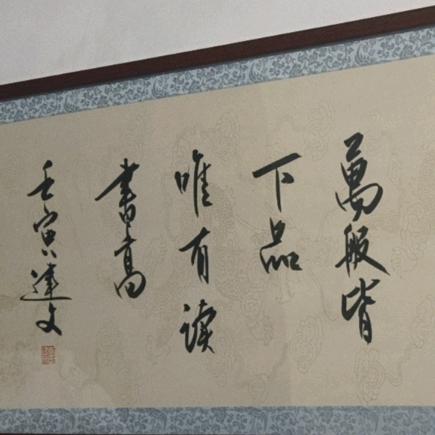 萬般皆
下品
唯有读
書高
壬寅 建文